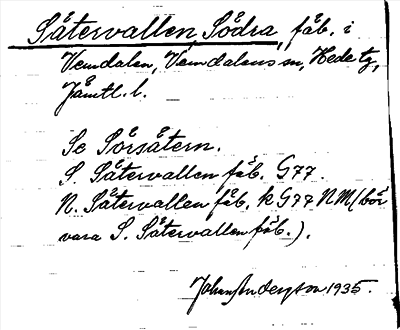 Såtervallen, Södra, fäb. i
Vemdalen, Vemdalens sn, Hede tg,
Jämtl. l.
Se Sörsåtern.
S. Såtervallen fäb. G77.
N. Såtervallen fäb. k G77 NM (bör
vara S. Såtervallen fäb.).
Johan Anderson 1935.